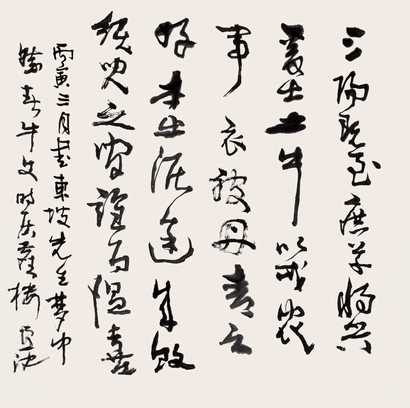 三陽既至庶草將興
爰出土牛以戒農
事衣被丹青之
好本出泥途成毀
須臾之間誰為慍喜
丙寅三月書東坡先生夢中
春牛文時居樓